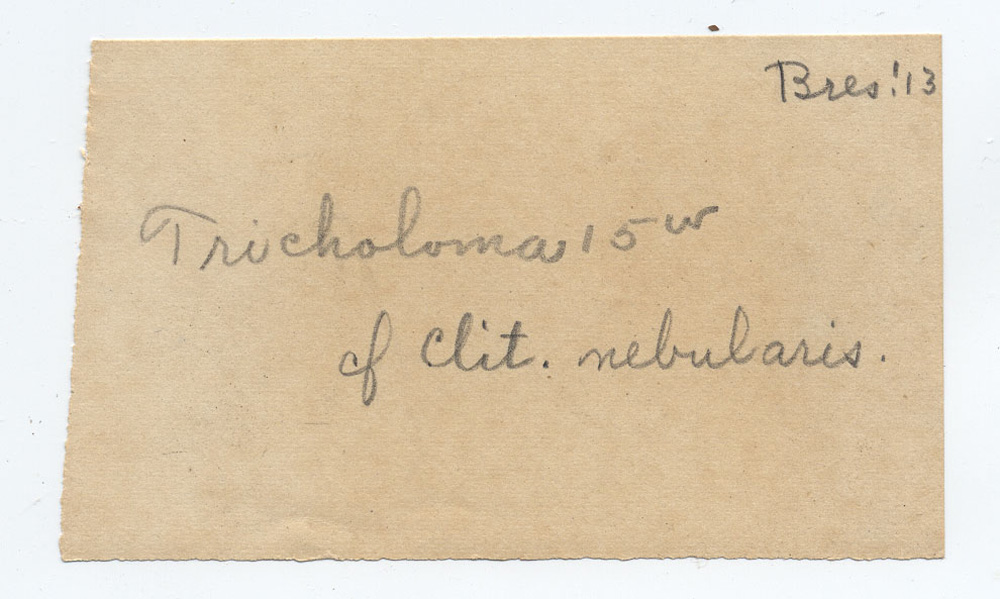 Bres! '13
Tricholoma 15 w
cf Clit. nebularis.